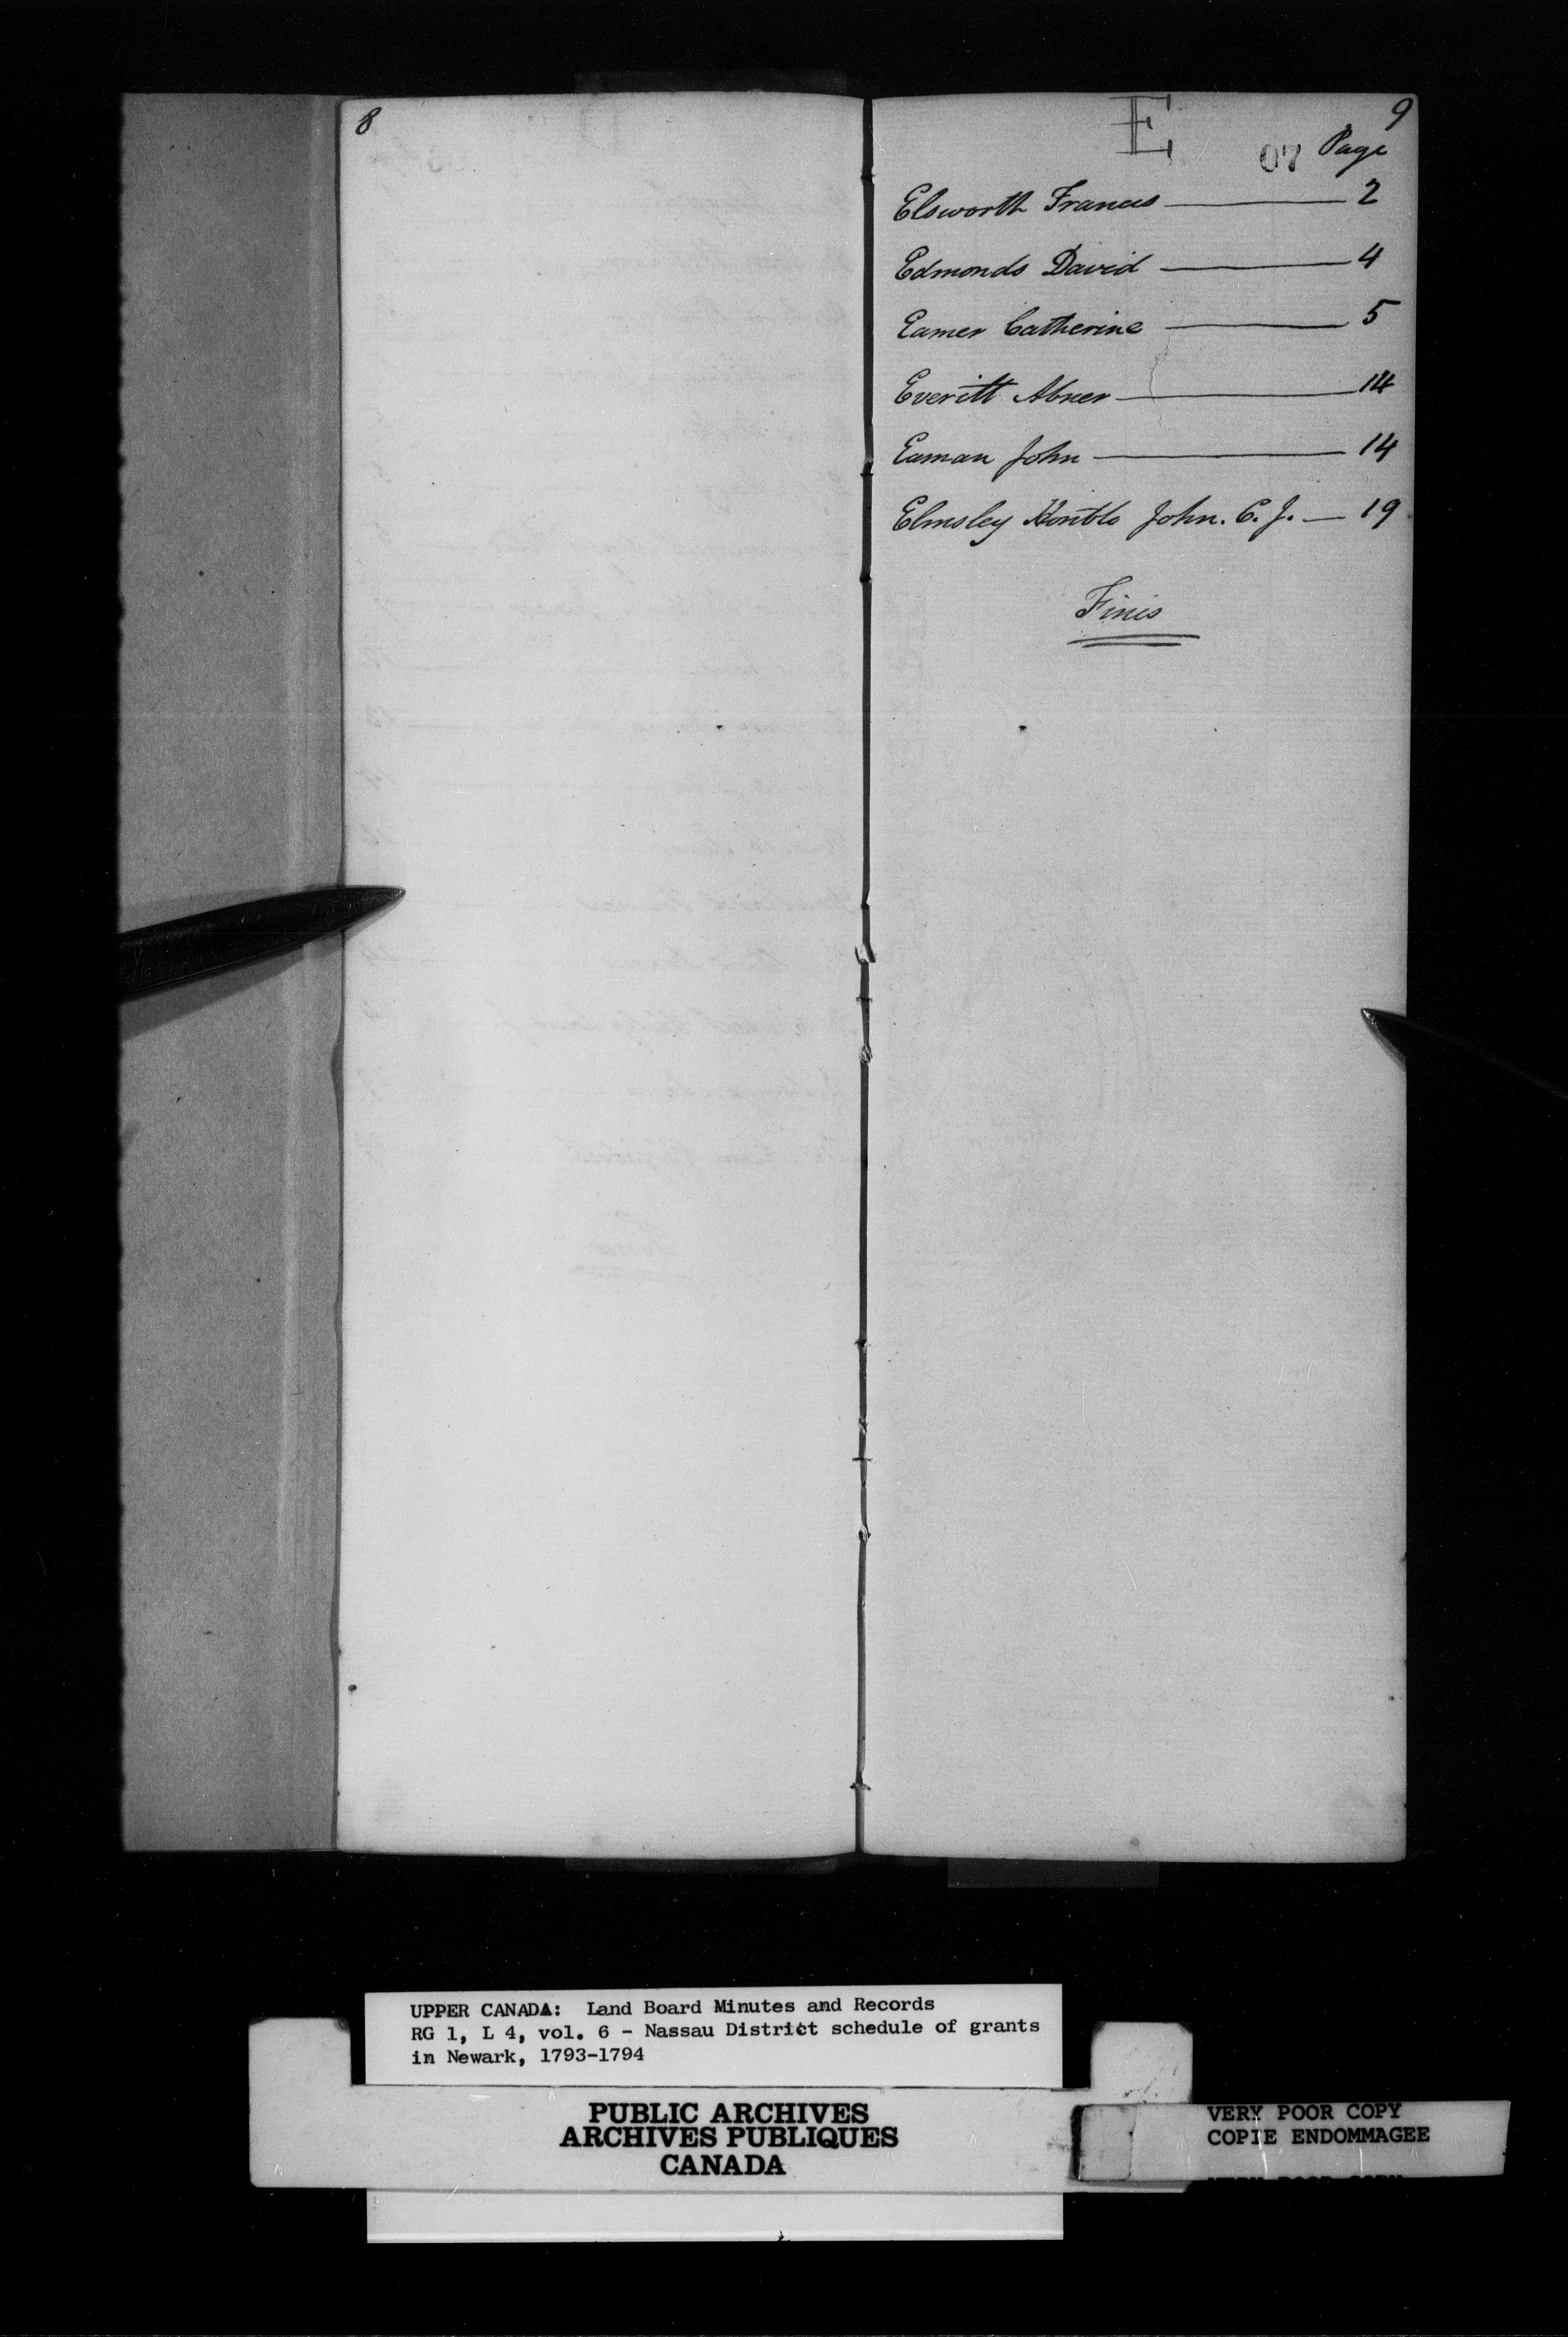 8
9
E
07 Page
Elsworth Francis — 2
Edmonds David — 4
Eamer Catherine — 5
Everitt Abner — 14
Eaman John — 14
Elmsley Honble John. C. J. — 19
Finis
UPPER CANADA: Land Board Minutes and Records
RG 1, L 4, vol. 6 - Nassau District schedule of grants
in Newark, 1793-1794
PUBLIC ARCHIVES
ARCHIVES PUBLIQUES
CANADA
VERY POOR COPY
COPIE ENDOMMAGEE